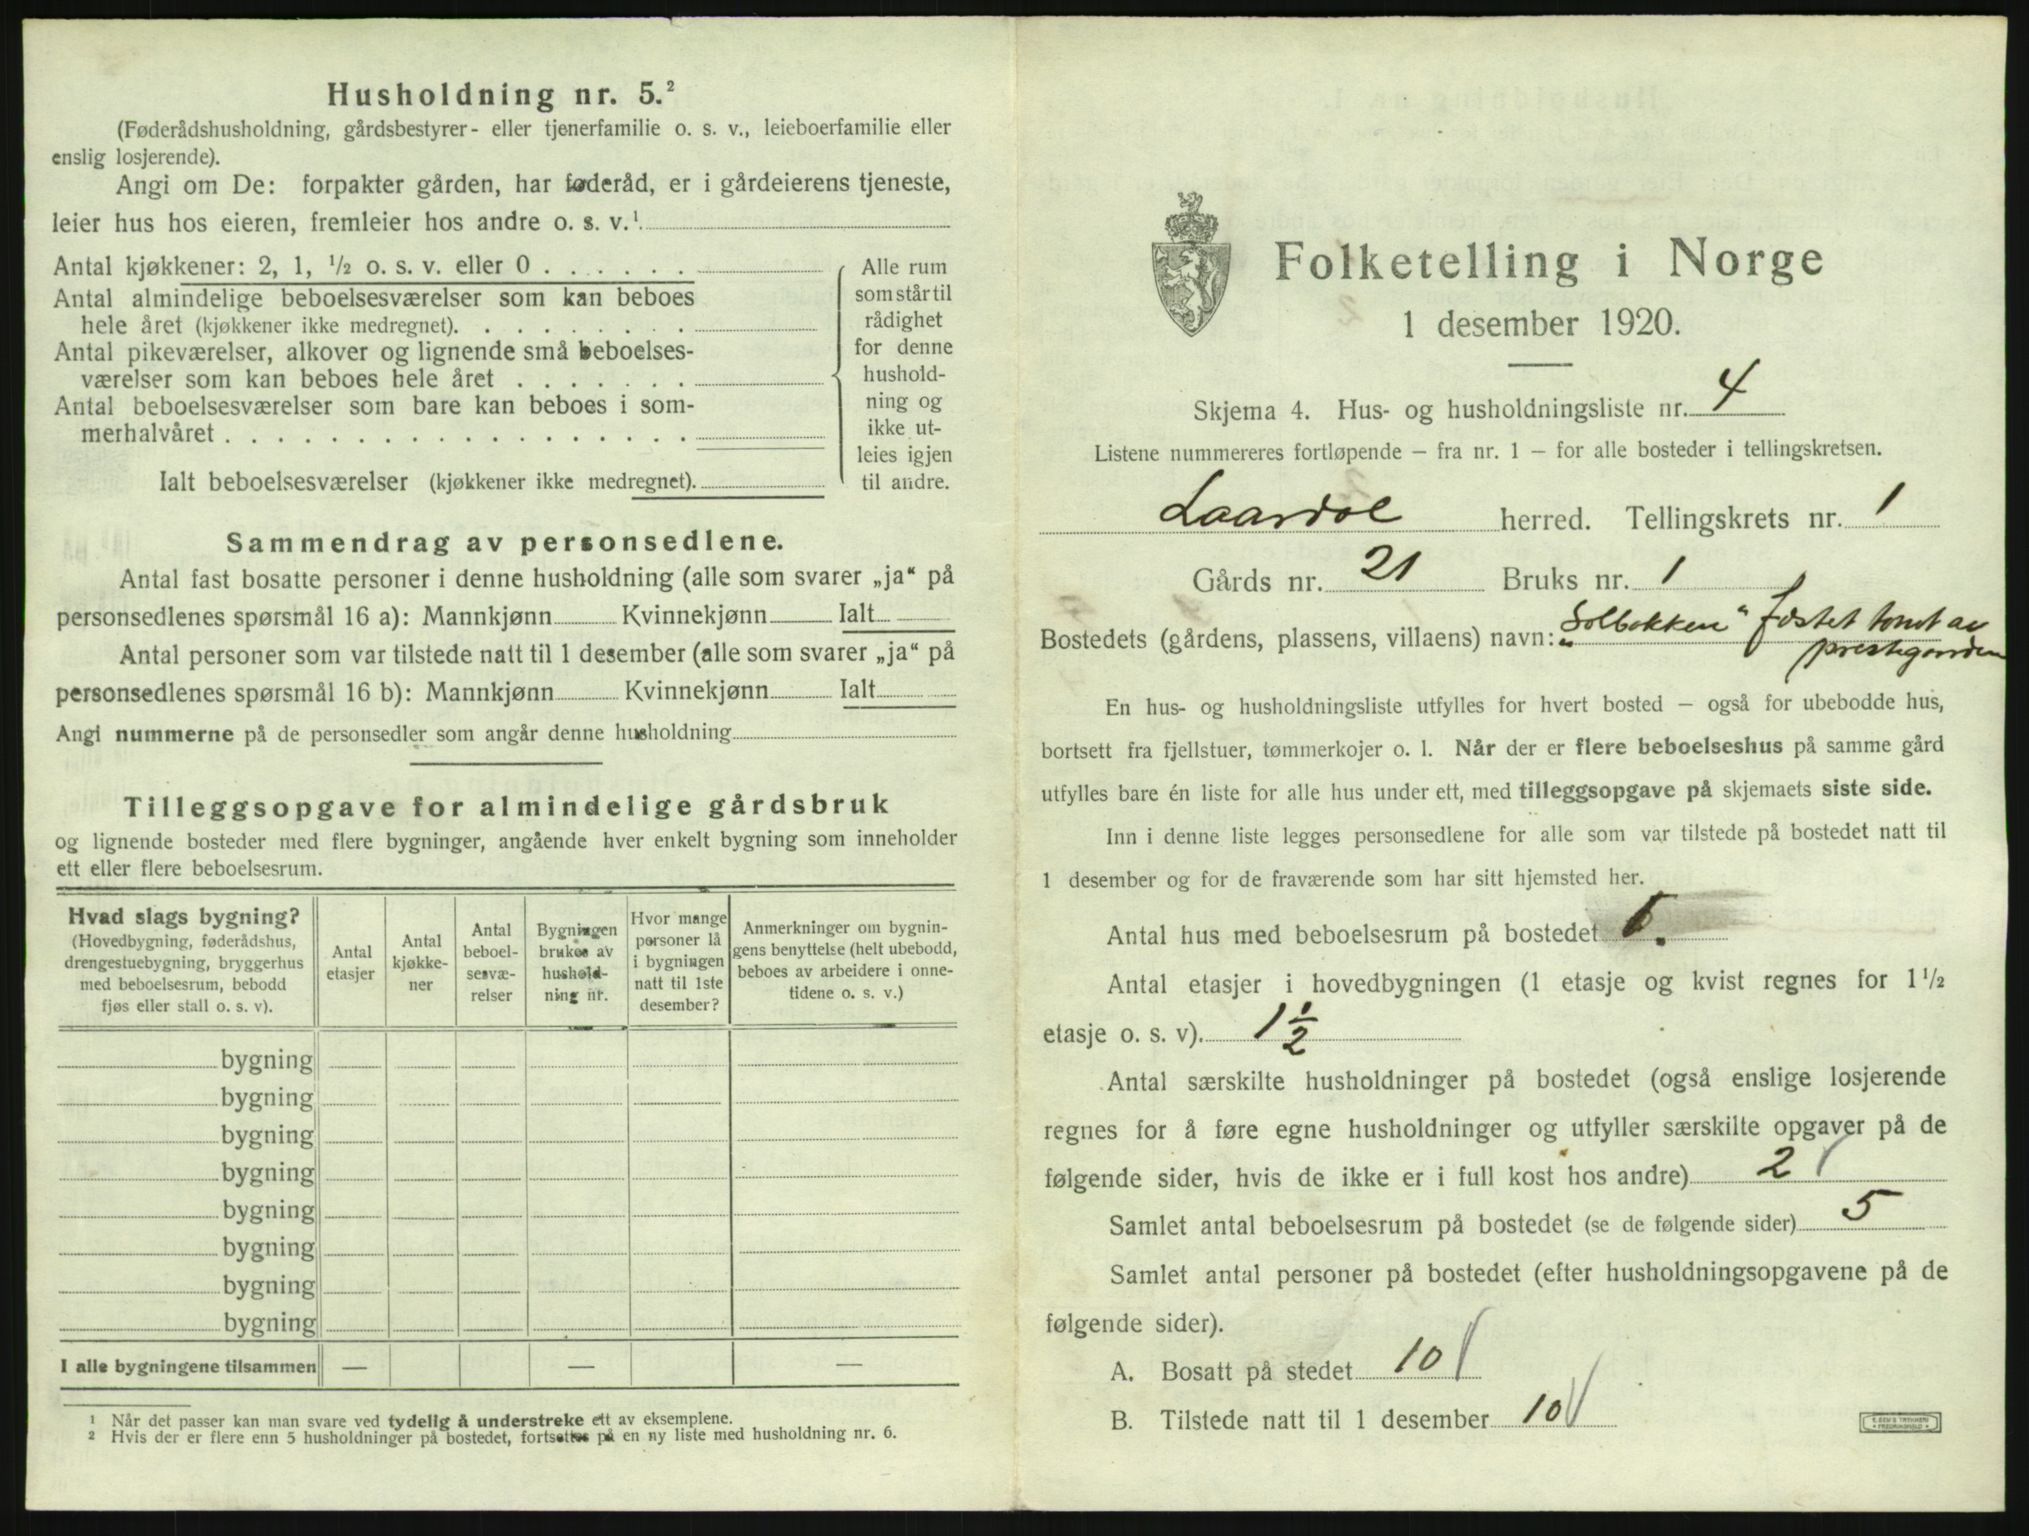 Husholdning nr. 5.²
(Føderådshusholdning, gårdsbestyrer- eller tjenerfamilie o. s. v., leieboerfamilie eller
enslig losjerende).
Angi om De: forpakter gården, har føderåd, er i gårdeierens tjeneste,
leier hus hos eieren, fremleier hos andre o. s. v.¹
Antal kjøkkener: 2, 1, ½ o. s. v. eller 0
Antal almindelige beboelsesværelser som kan beboes
hele året (kjøkkener ikke medregnet).
Antal pikeværelser, alkover og lignende små beboelses-
værelser som kan beboes hele året
Antal beboelsesværelser som bare kan beboes i som-
merhalvåret
Ialt beboelsesværelser (kjøkkener ikke medregnet).
Alle rum
som står til
rådighet
for denne
hushold-
ning og
ikke ut-
leies igjen
til andre.
Sammendrag av personsedlene.
Antal fast bosatte personer i denne husholdning (alle som svarer „ja“ på
personsedlenes spørsmål 16 a): Mannkjønn Kvinnekjønn Ialt
Antal personer som var tilstede natt til 1 desember (alle som svarer „ja“ på
personsedlenes spørsmål 16 b): Mannkjønn Kvinnekjønn Ialt
Angi nummerne på de personsedler som angår denne husholdning
Tilleggsopgave for almindelige gårdsbruk
og lignende bosteder med flere bygninger, angående hver enkelt bygning som inneholder
ett eller flere beboelsesrum.
Hvad slags bygning?
(Hovedbygning, føderådshus,
drengestuebygning, bryggerhus
med beboelsesrum, bebodd
fjøs eller stall o. s. v).
Antal
etasjer
Antal
kjøkke-
ner
Antal
beboel-
sesvæ-
relser
Bygningen
brukes av
hushold-
ning nr.
Hvor mange
personer lå
i bygningen
natt til 1ste
desember?
Anmerkninger om bygnin-
gens benyttelse (helt ubebodd,
beboes av arbeidere i onne-
tidene o. s. v.)
bygning
bygning
bygning
bygning
bygning
bygning
bygning
bygning
I alle bygningene tilsammen — — —
¹ Når det passer kan man svare ved tydelig å understreke ett av eksemplene.
² Hvis der er flere enn 5 husholdninger på bostedet, fortsettes på en ny liste med husholdning nr. 6.
Folketelling i Norge
1 desember 1920.
Skjema 4. Hus- og husholdningsliste nr. 4
Listene nummereres fortløpende – fra nr. 1 – for alle bosteder i tellingskretsen.
Laardal herred. Tellingskrets nr. 1
Gårds nr. 21 Bruks nr. 1
Bostedets (gårdens, plassens, villaens) navn: „Solbakken“ fæstet tomt av
prestegaarden
En hus- og husholdningsliste utfylles for hvert bosted – også for ubebodde hus,
bortsett fra fjellstuer, tømmerkojer o. l. Når der er flere beboelseshus på samme gård
utfylles bare én liste for alle hus under ett, med tilleggsopgave på skjemaets siste side.
Inn i denne liste legges personsedlene for alle som var tilstede på bostedet natt til
1 desember og for de fraværende som har sitt hjemsted her.
Antal hus med beboelsesrum på bostedet 1.
Antal etasjer i hovedbygningen (1 etasje og kvist regnes for 1½
etasje o. s. v). 1½
Antal særskilte husholdninger på bostedet (også enslige losjerende
regnes for å føre egne husholdninger og utfyller særskilte opgaver på de
følgende sider, hvis de ikke er i full kost hos andre) 2
Samlet antal beboelsesrum på bostedet (se de følgende sider) 5
Samlet antal personer på bostedet (efter husholdningsopgavene på de
følgende sider).
A. Bosatt på stedet 10
B. Tilstede natt til 1 desember 10